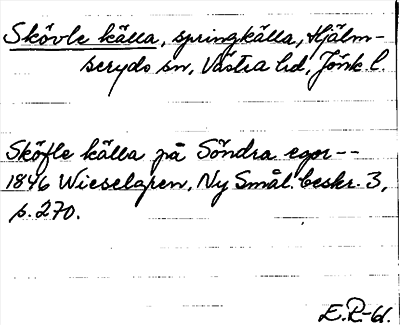 Skövle källa, springkälla, Hjälm-
seryds sn, Västra hd, Jönk. l.
Sköfle källa på Söndra egor--
1846 Wieselgren, Ny Smål. beskr. 3,
s. 270.
E.R-H.